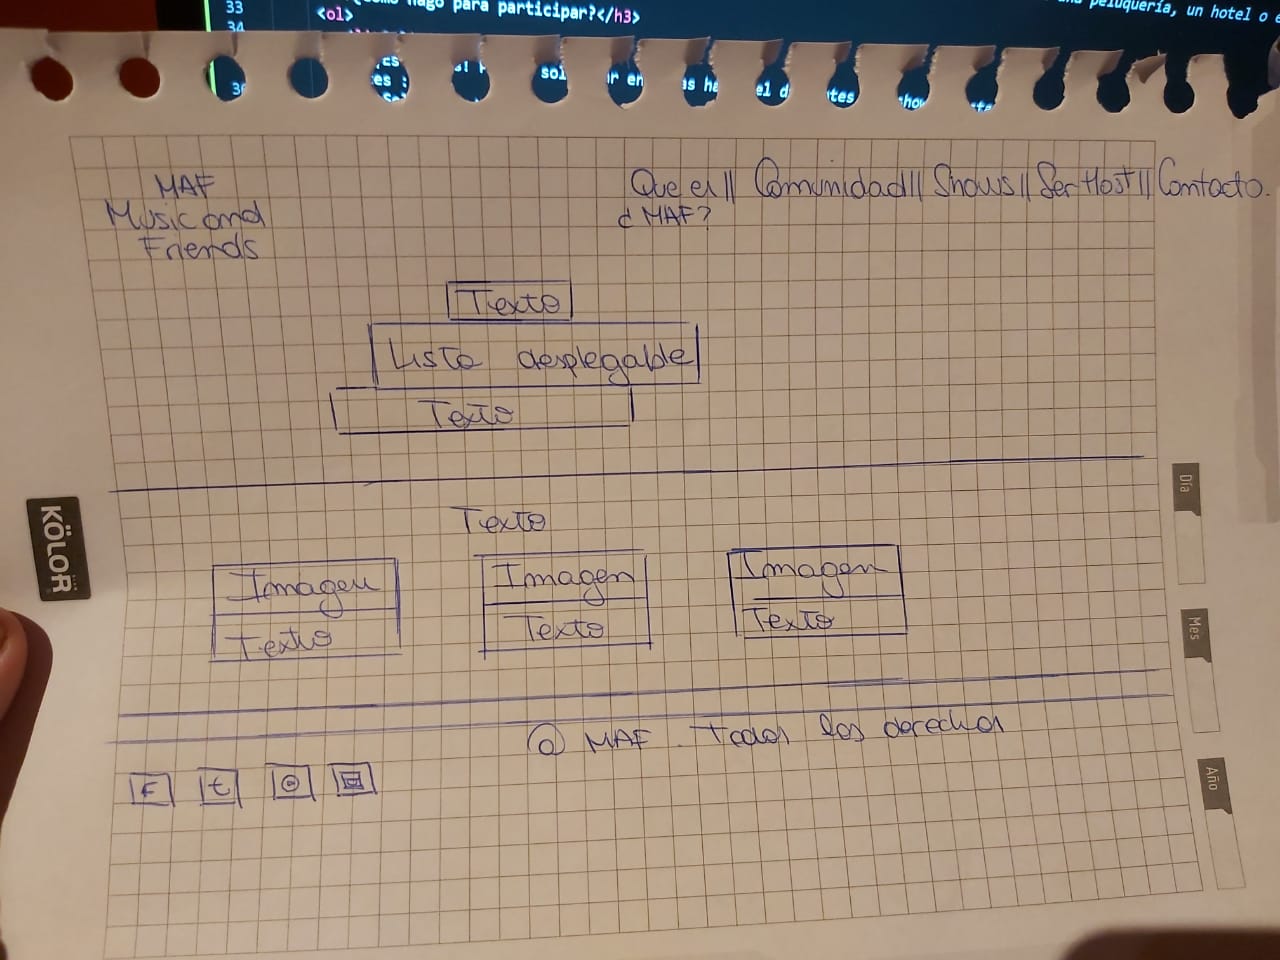 33
34
<ol>
para participar?</h3>
peluquería, un hotel o e
MAF
Music and
Friends
Que es || Comunidad || Shows || Ser Host || Contacto.
¿ MAF?
Texto
Lista desplegable
Texto
Texto
Imagen
Imagen
Imagen
Texto
Texto
Texto
@ MAF. Todos los derechos
F
t
KÖLOR
Día
Mes
Año